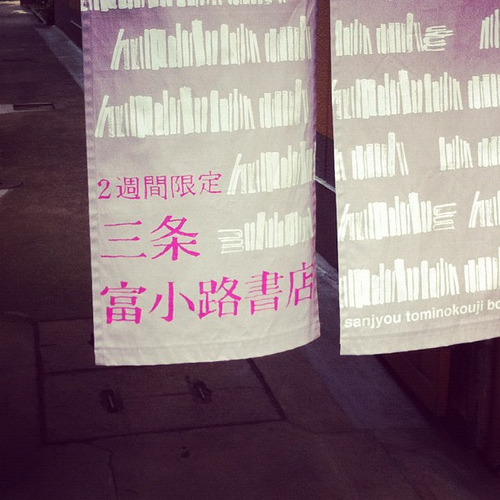 2週間限定
三条
富小路書店
sanjyou tominokouji